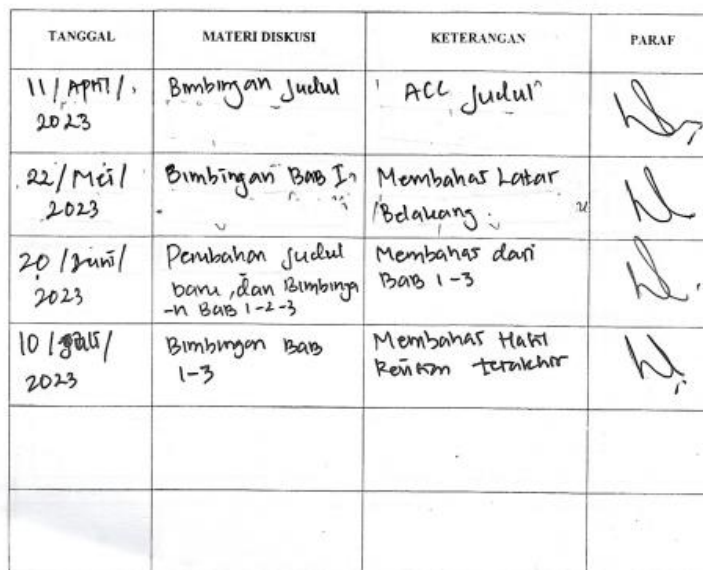 TANGGAL MATERI DISKUSI KETERANGAN PARAF
11 / April /
2023
Bimbingan Judul
ACC Judul
22 / Mei /
2023
Bimbingan BAB I
Membahas Latar
Belakang
20 / Juni /
2023
Perubahan Judul
baru, dan Bimbinga
-n BAB 1-2-3
Membahas dari
BAB 1-3
10 / Juli /
2023
Bimbingan BAB
1-3
Membahas Hasil
Revisian terakhir